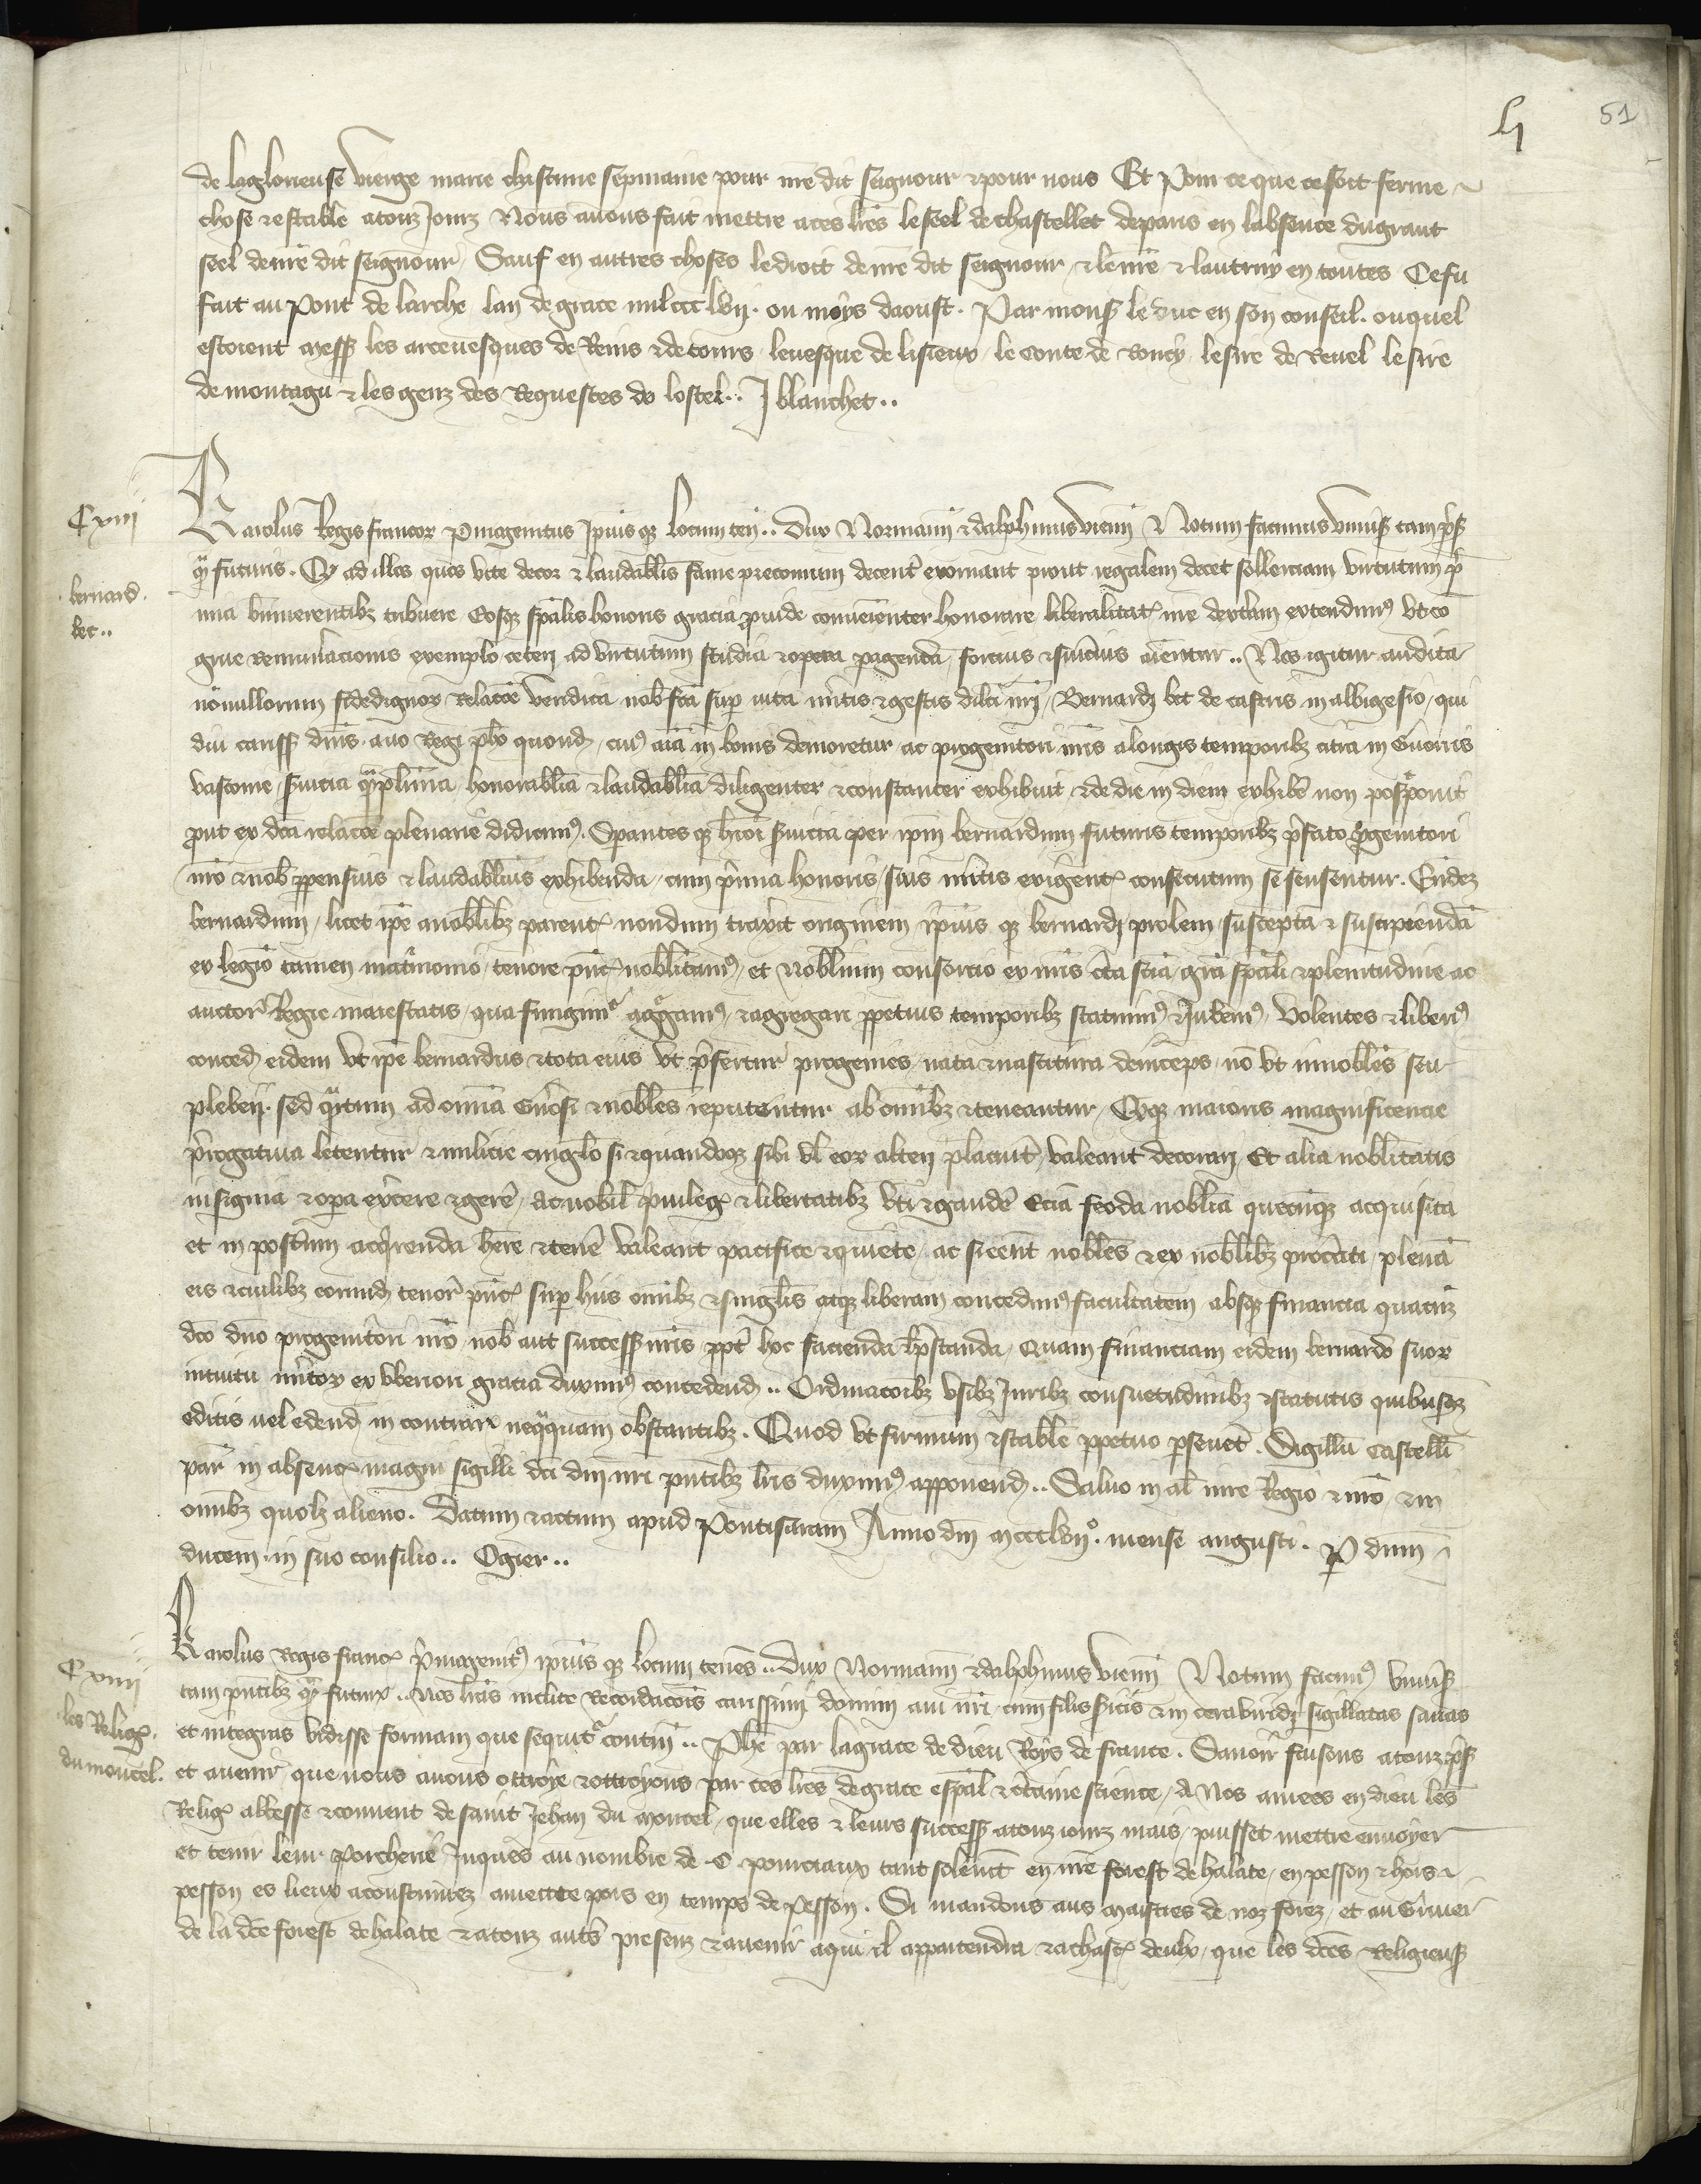 li 51
de la glorieuse vierge marie chascune sepmaine pour nre dit seignour et pour nous Et Pour ce que ce soit ferme
chose et estable a touz Jourz Nous avons fait mettre a ces lres le seel de chastellet de paris en labsence du grant
seel de nre dit seignour, Sauf en autres choses le droit de nre dit seignour, et le nre et lautruy en toutes Ce fu
fait au Pont de larche lan de grace mil ccc lvij. ou moys daoust. Par mons le duc en son conseil. ouquel
estoient mess les arcevesques de Reins et de tours levesque de lisieux, le conte de Roucy le sire de Revel le sire
de montagu et les genz des Requestes de lostel.. J blanchet..
Cxiij
bernard.
bec..
Karolus Regis francor Primogenitus Ipius qz locum ten.. dux Normanni et dalphinus vienn Notum facimus univis tam pns
qm futuris. Q ad illos quos vite decor et laudabilis fame preconium decent exornant prout regalem decet sollerciam virtutum p
mia bnmerentibz tribuere Eosqz spalis honoris gracia provide convenienter honorare liberalitat nre dextram extendimus vt eo
grue Remunlacionis exemplo ceteri ad virtutum studia et opera peragenda, forcius et suavius aientur.. Nos igitur audita
nonullorum fidedignor relacoe veridica nob fca sup vita mitis et gestis dilci nri, Bernardi bec de castris in albigesio, qui
diu cariss dnis avo Regi pho quond, cui aia in bonis demoretur ac progenitori nris a longis temporibz citra in Guerris
vasconie, svicia qmplurima honorabilia et laudabilia diligenter et constanter exhibuit, et de die in diem exhibe non postponit
put ex dca relacoe plenarie didicimus. Spantes qz hmoi svicia per ipm bernardum futuris temporibz pfato progenitori
nro et nob ppensius et laudabilius exhibenda, cum pmia honoris, suis mitis exigent consecutum se senserit. Eundez
bernardum, licet ipe a nobilibz parent nondum traxit originem ipius qz bernardi prolem susceptam et suscipiendam
ex legio tamen matrimonio, tenore pnt nobilitamus, et Nobilium consorcio ex nris cta scia, gra spali et plenitudine ac
auctor Regie maiestatis, qua fungimur aggamus, et agregari ppetuis temporibz statuimus et Jubemus, Volentes et liberi
conced eidem vt ipe bernardus et tota eius vt pfertur progenies, nata et nascitura deinceps, no vt innobiles seu
plebeij. sed qtum ad omia Gnosi et nobiles reputentur ab omibz et teneantur, Eqz maioris magnificencie
progativa letentur et milicie cinglo si et quandoqz sibi vl eor alteri placuit, valeant decorari, Et alia nobilitatis
insignia et opa excere et gere, ac nobil privileg et libertatibz vti et gaude Ecia feoda nobilia quecumqz acquisita
et in posterum acqrenda here et tene valeant pacifice et quiete, ac si eent nobiles et ex nobilibz procreati, plenam
eis et cuilibz eorund tenor pnt sup hiis omibz et singlis atqz liberam concedimus facultatem absqz financia quacuz
dco dno progenitori nro nob aut success nris ppt hoc facienda vl pstanda, Quam financiam eidem bernardo suor
intuitu mitor ex vberiori gracia duximus concedend.. Ordinacoibz vsibz Juribz consuetudinibz et statutis quibuscz
editis uel edend in contrar neqqquam obstantibz. Quod vt firmum et stabile ppetuo psevet. Sigillu Castelli
par in absenc magni sigilli dci dni nri pntibz lris duximus apponend.. Salvo in al iure Regio et nro, et in
omibz quolz alieno. Datum et actum apud Pontisaram Anno dni Mccclvijo. mense augusti. P dnm
ducem in suo consilio.. Ogier..
Cxiiij
les Relig.
du moncel.
Karolus Regis franc primogenitus ipius qz locum tenes.. dux Normann et dalphinus vienn Notum facimus univis
tam pntibz qm futur.. Nos lras inclite Recordacois carissimi domini avi nri, cum filis sicis et in cera viridi sigillatas sanas
et integras vidisse formam que sequitur contin.. Phe par la grace de dieu Roys de france. Savoir faisons a touz pns
et avenir, que nous avons ottroye et ottroyons par ces lres de grace espal et certaine science, a Nos amees en dieu les
Relig abbesse et convent de saint Jehan du Moncel, que elles et leurs success a touz jourz mais, puisset mettre envoyer
et tenir leur Porcherie Jusques au nombre de C pourciaux tant solemt en nre forest de halate, en pesson et hors
pesson es lieux acoustumez a mettre pors en temps de Pesson. Si mandons aus Maistres de noz forez, et au Gruier
de la dce forest de halate et a touz auts presenz et avenir a qui il appartendra et a chasc deulx, que les dces Religieus